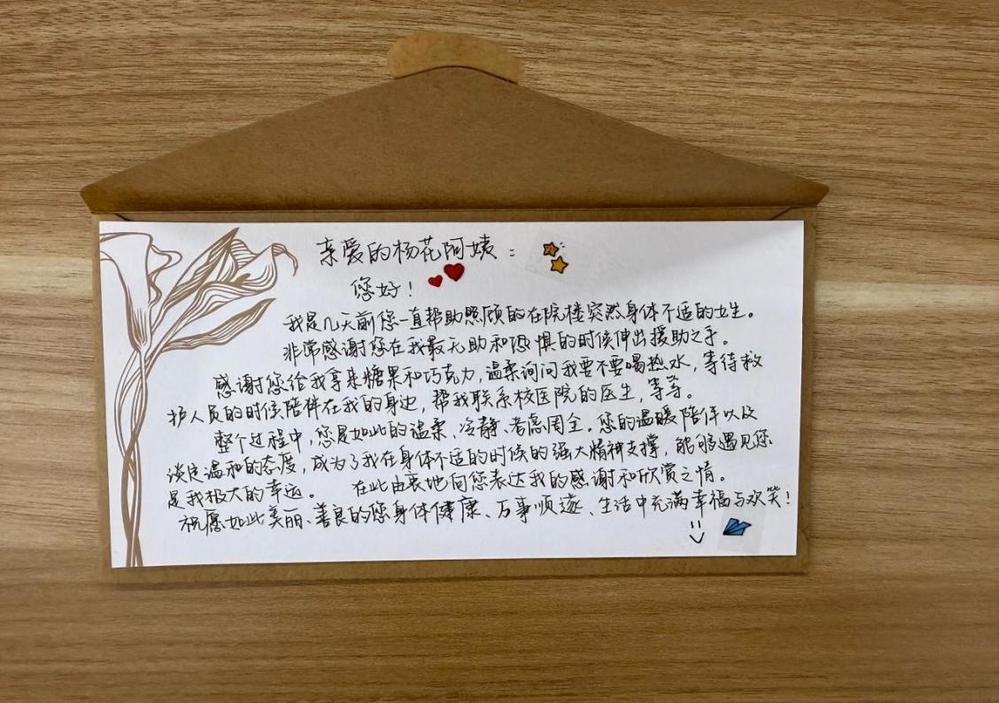 亲爱的杨花阿姨：
您好！
我是几天前您一直帮助照顾的在院楼突然身体不适的女生。
非常感谢您在我最无助和恐惧的时候伸出援助之手。
感谢您给我拿来糖果和巧克力，温柔询问我要不要喝热水，等待救
护人员的时候陪伴在我的身边，帮我联系校医院的医生，等等。
整个过程中，您是如此的温柔、冷静、考虑周全。您的温暖陪伴以及
淡定温和的态度，成为了我在身体不适的时候的强大精神支撑，能够遇见您
是我极大的幸运。 在此由衷地向您表达我的感谢和欣赏之情。
祝愿如此美丽、善良的您身体健康、万事顺遂、生活中充满幸福与欢笑！